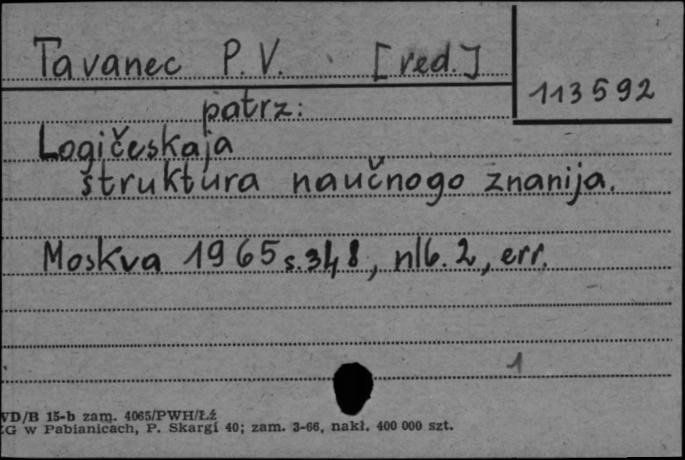 Tavanec P. V. [red.]
113592
patrz:
Logičeskaja
struktura naučnogo znanija.
Moskva 1965 s. 348, nlb. 2, err.
1
VD/B 15-b zam. 4065/PWH/Łź
ZG w Pabianicach, P. Skargi 40; zam. 3-66, nakł. 400 000 szt.